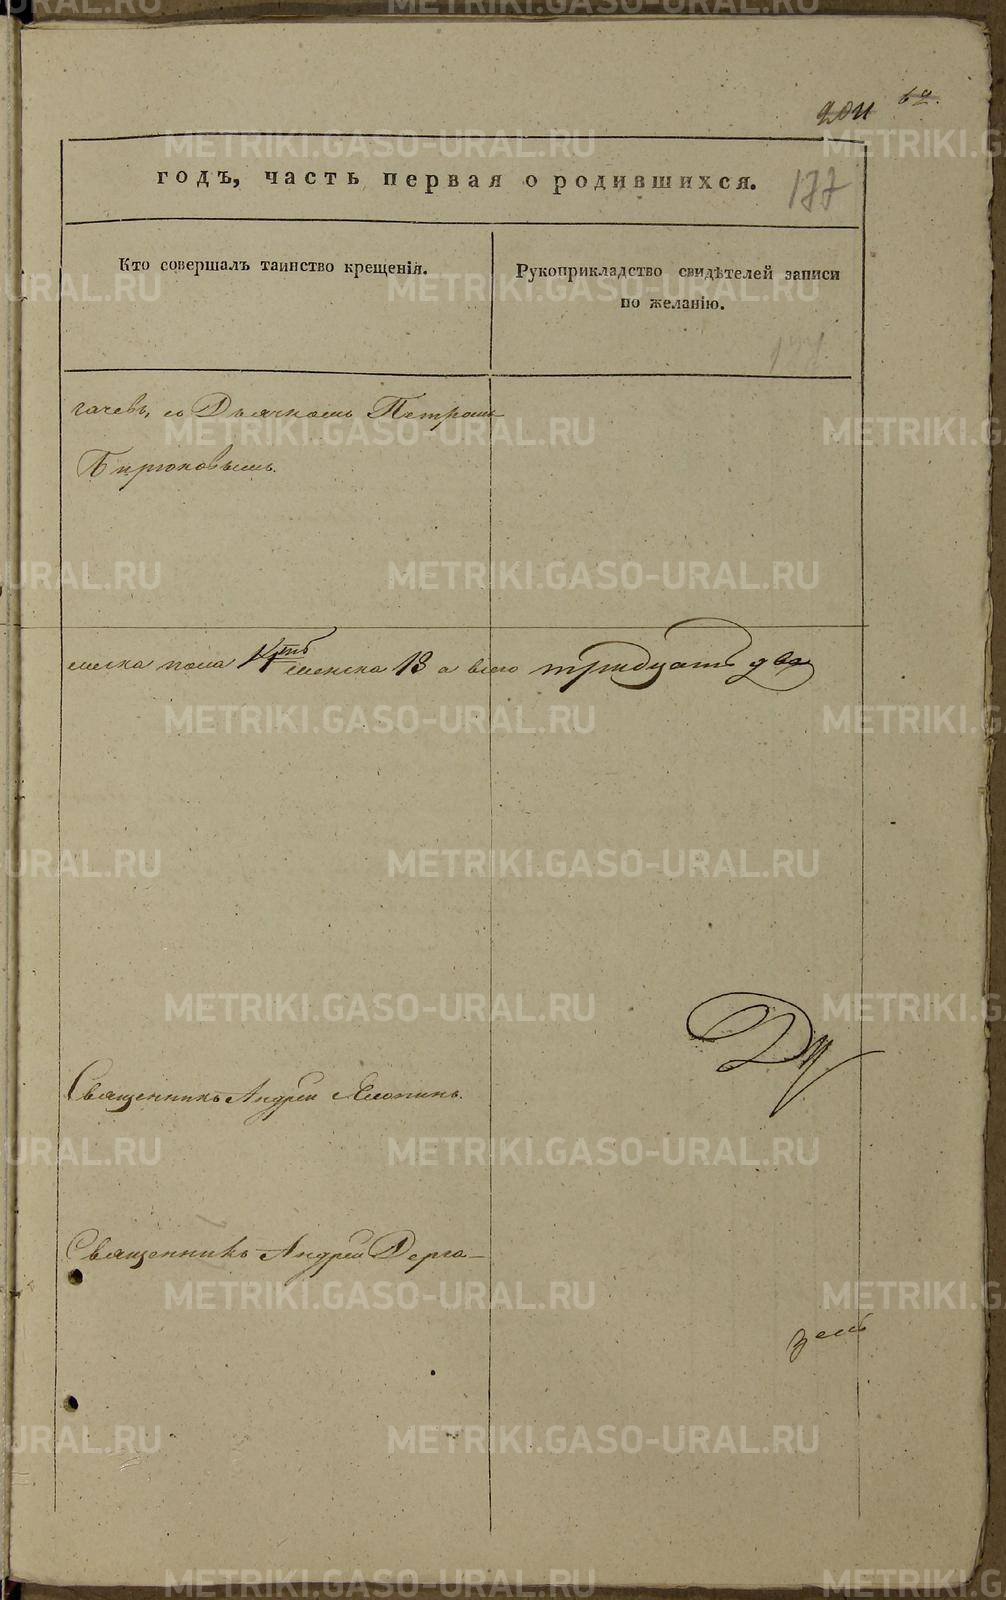 204 62.
годъ, часть первая о родившихся. 177
Кто совершалъ таинство крещенія.
Рукоприкладство свидѣтелей записи
по желанію.
177
гачевъ, съ Дьячкомъ Петромъ
Бирюковымъ.
мужска пола женска 13 а всего тридцать два
Священникъ Андрей
Священникъ Андрей Дерга-
METRIKI.GASO-URAL.RU